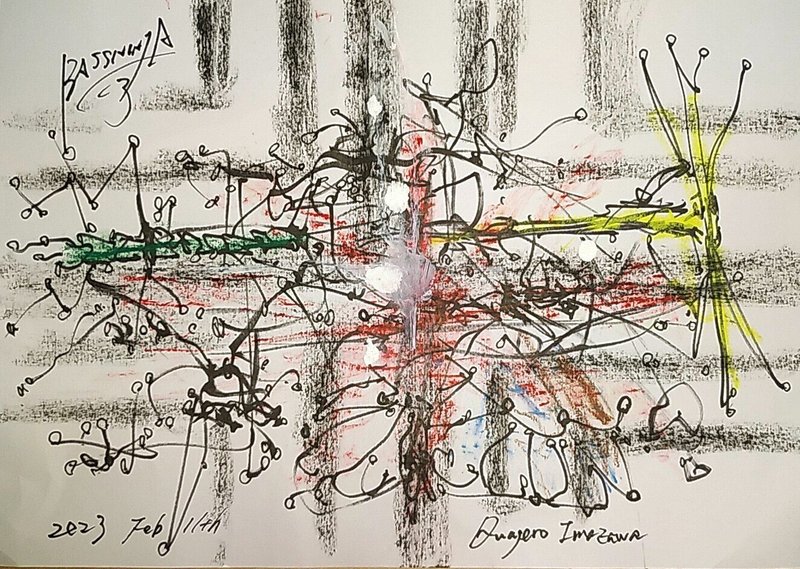 BASSNINJA
<3
2023 Feb 11th
Quagero Imazawa